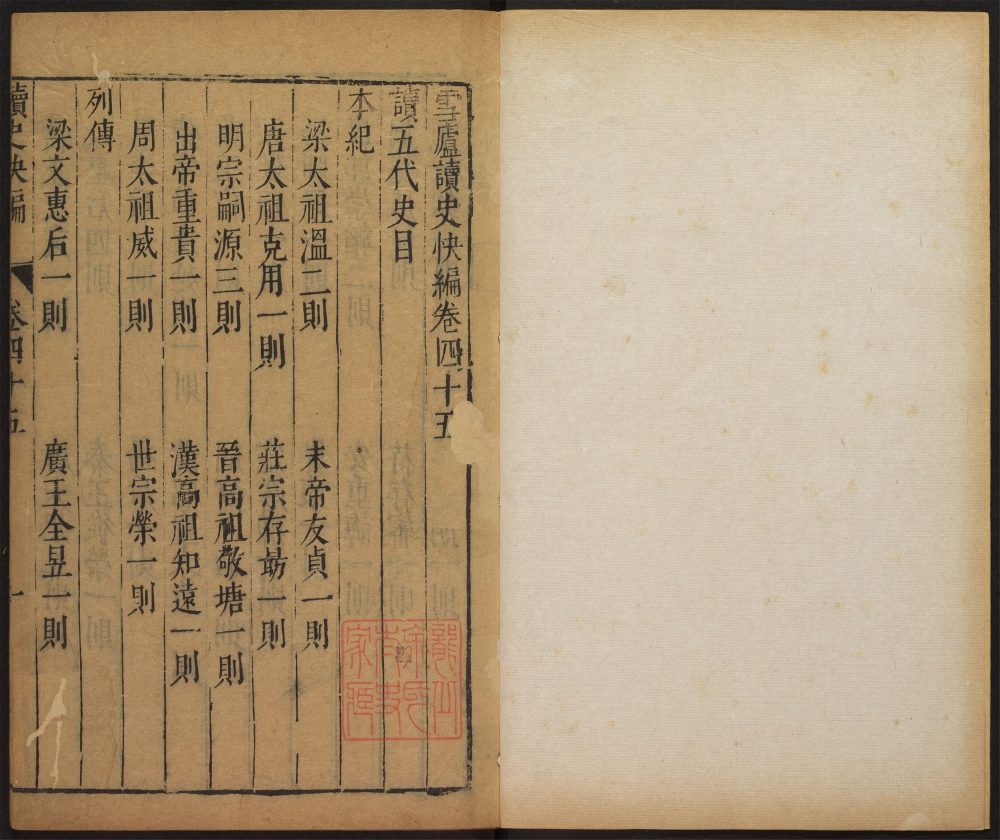 雪廬讀史快編卷四十五
讀五代史目
本紀
梁太祖溫二則 末帝友貞一則
唐太祖克用一則 莊宗存勗一則
明宗嗣源三則 晉高祖敬塘一則
出帝重貴一則 漢高祖知遠一則
周太祖威一則 世宗榮一則
列傳
梁文惠后一則 廣王全昱一則
讀史快編 卷四十五 一